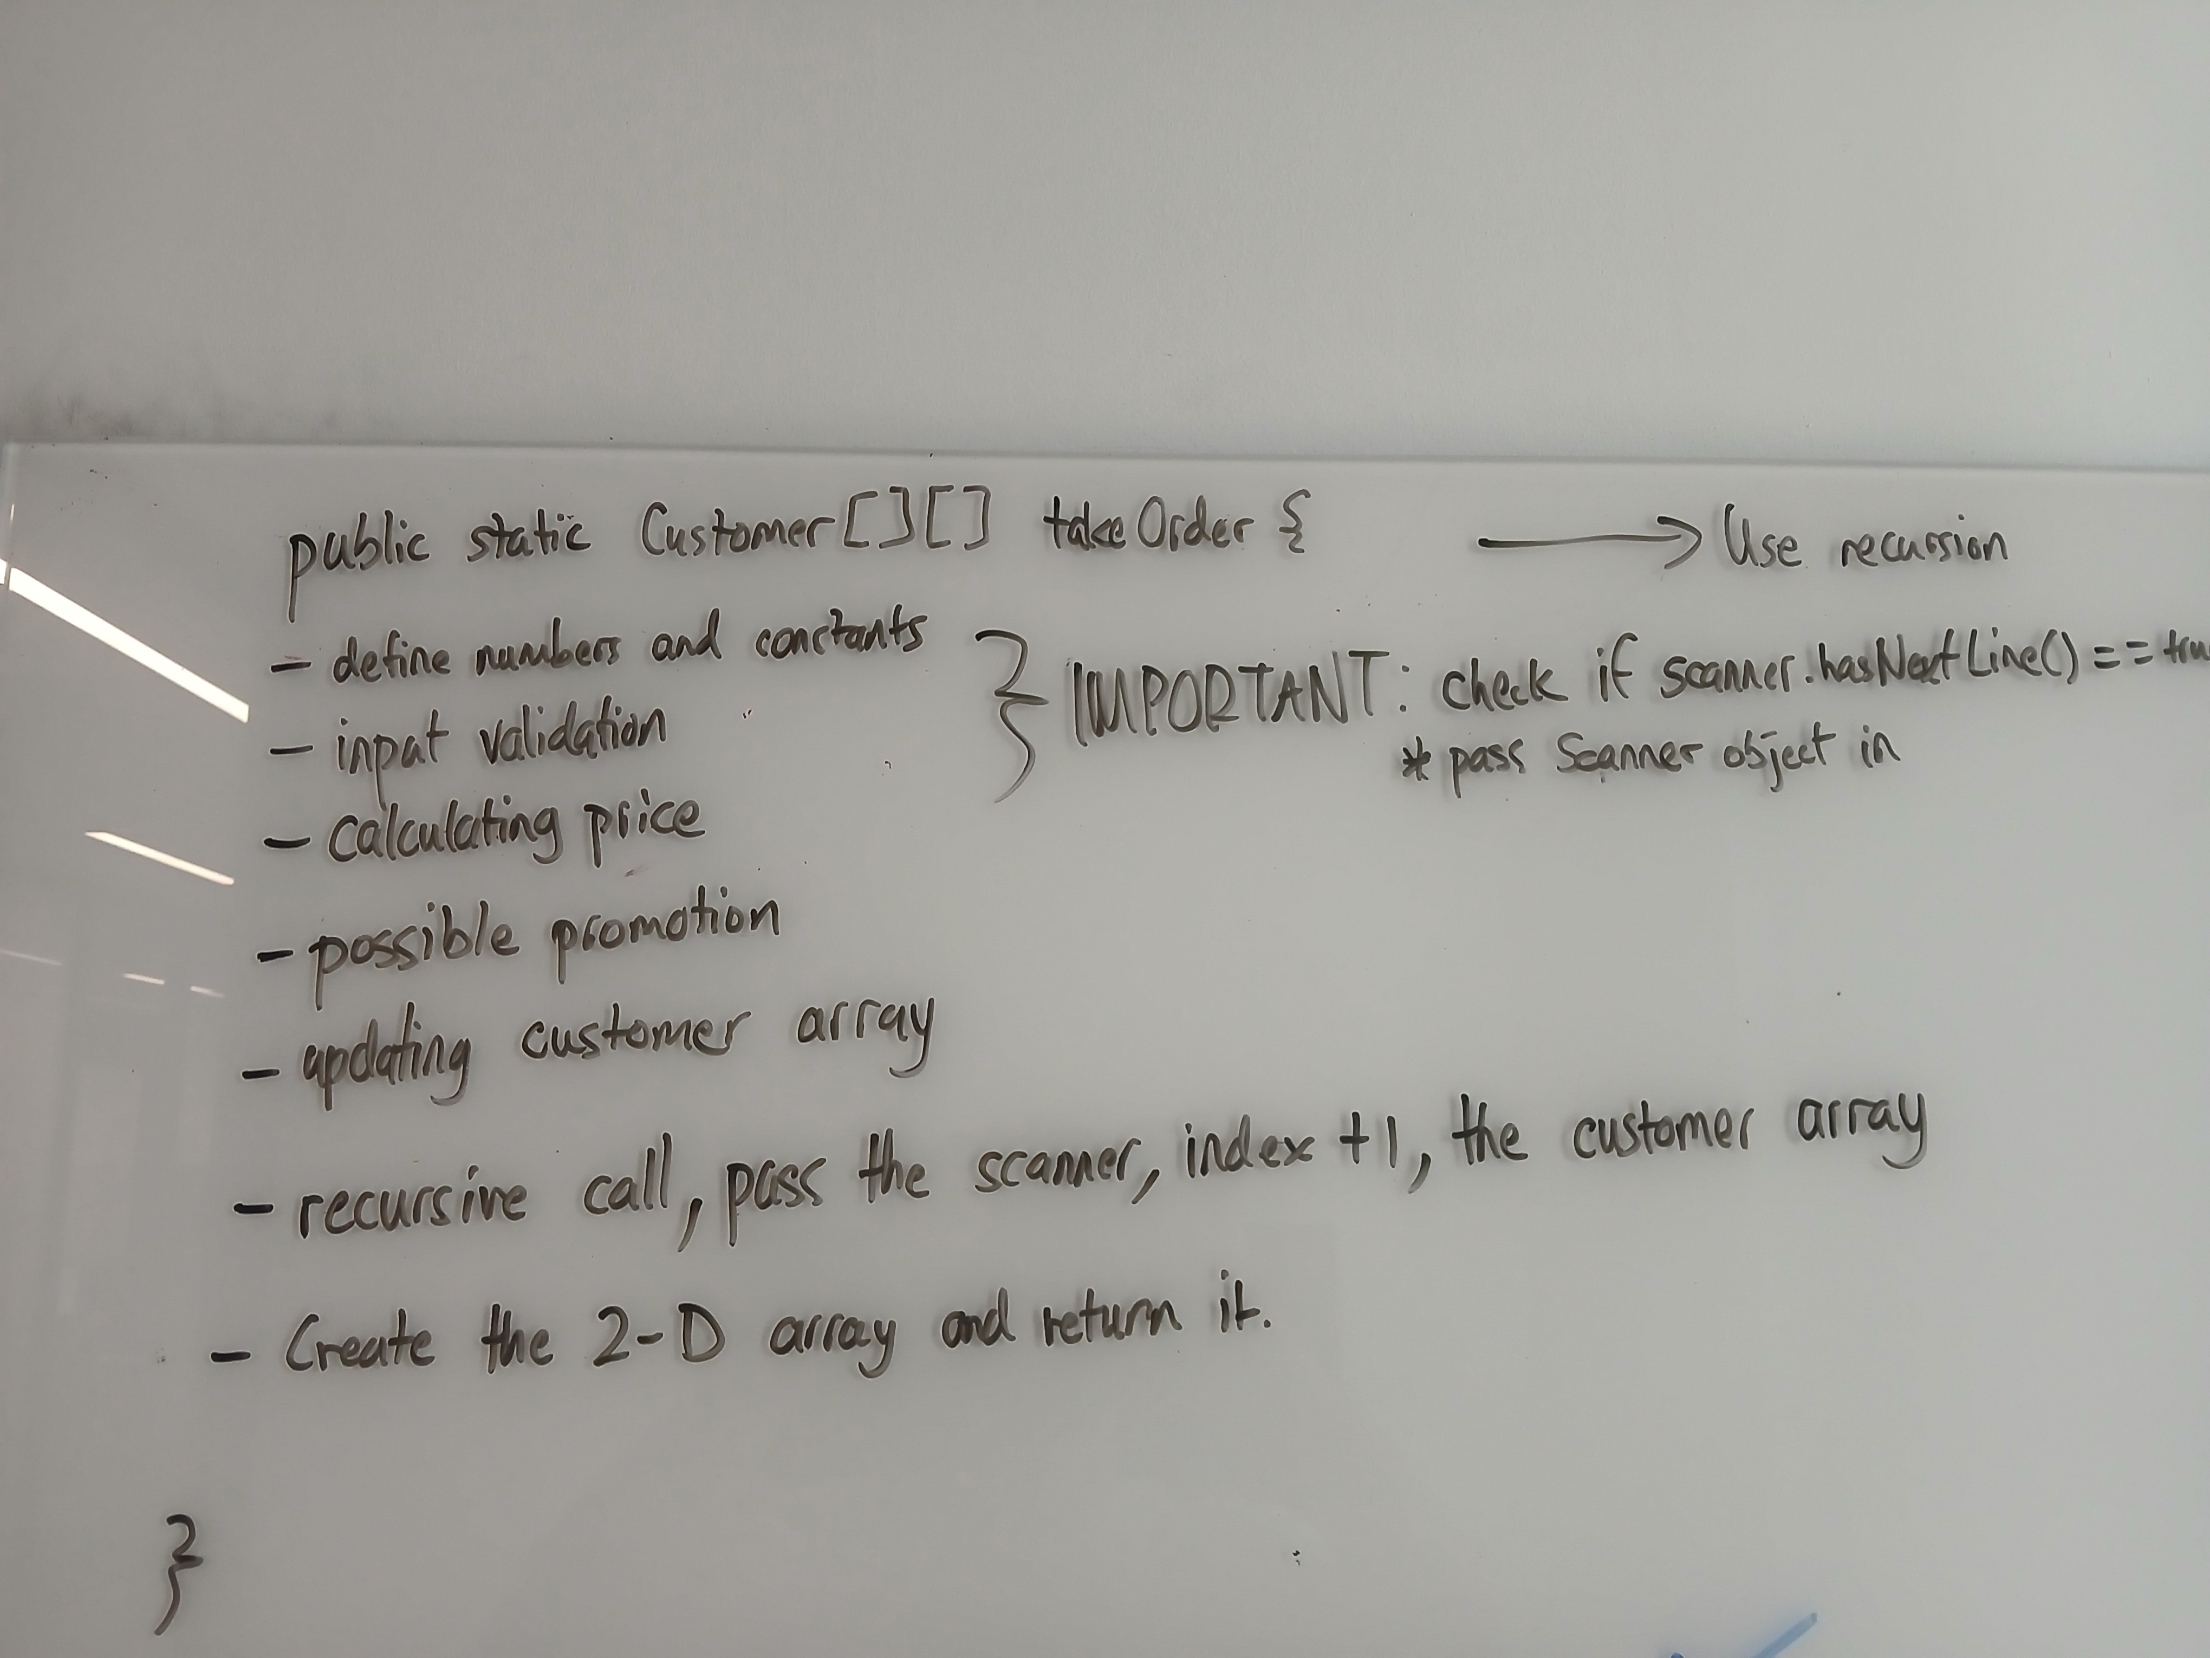 public static Customer[][] takeOrder { → Use recursion
- define numbers and constants
- input validation
} IMPORTANT: check if scanner.hasNextLine() == tru
* pass Scanner object in
- calculating price
- possible promotion
- updating customer array
- recursive call, pass the scanner, index +1, the customer array
- Create the 2-D array and return it.
}